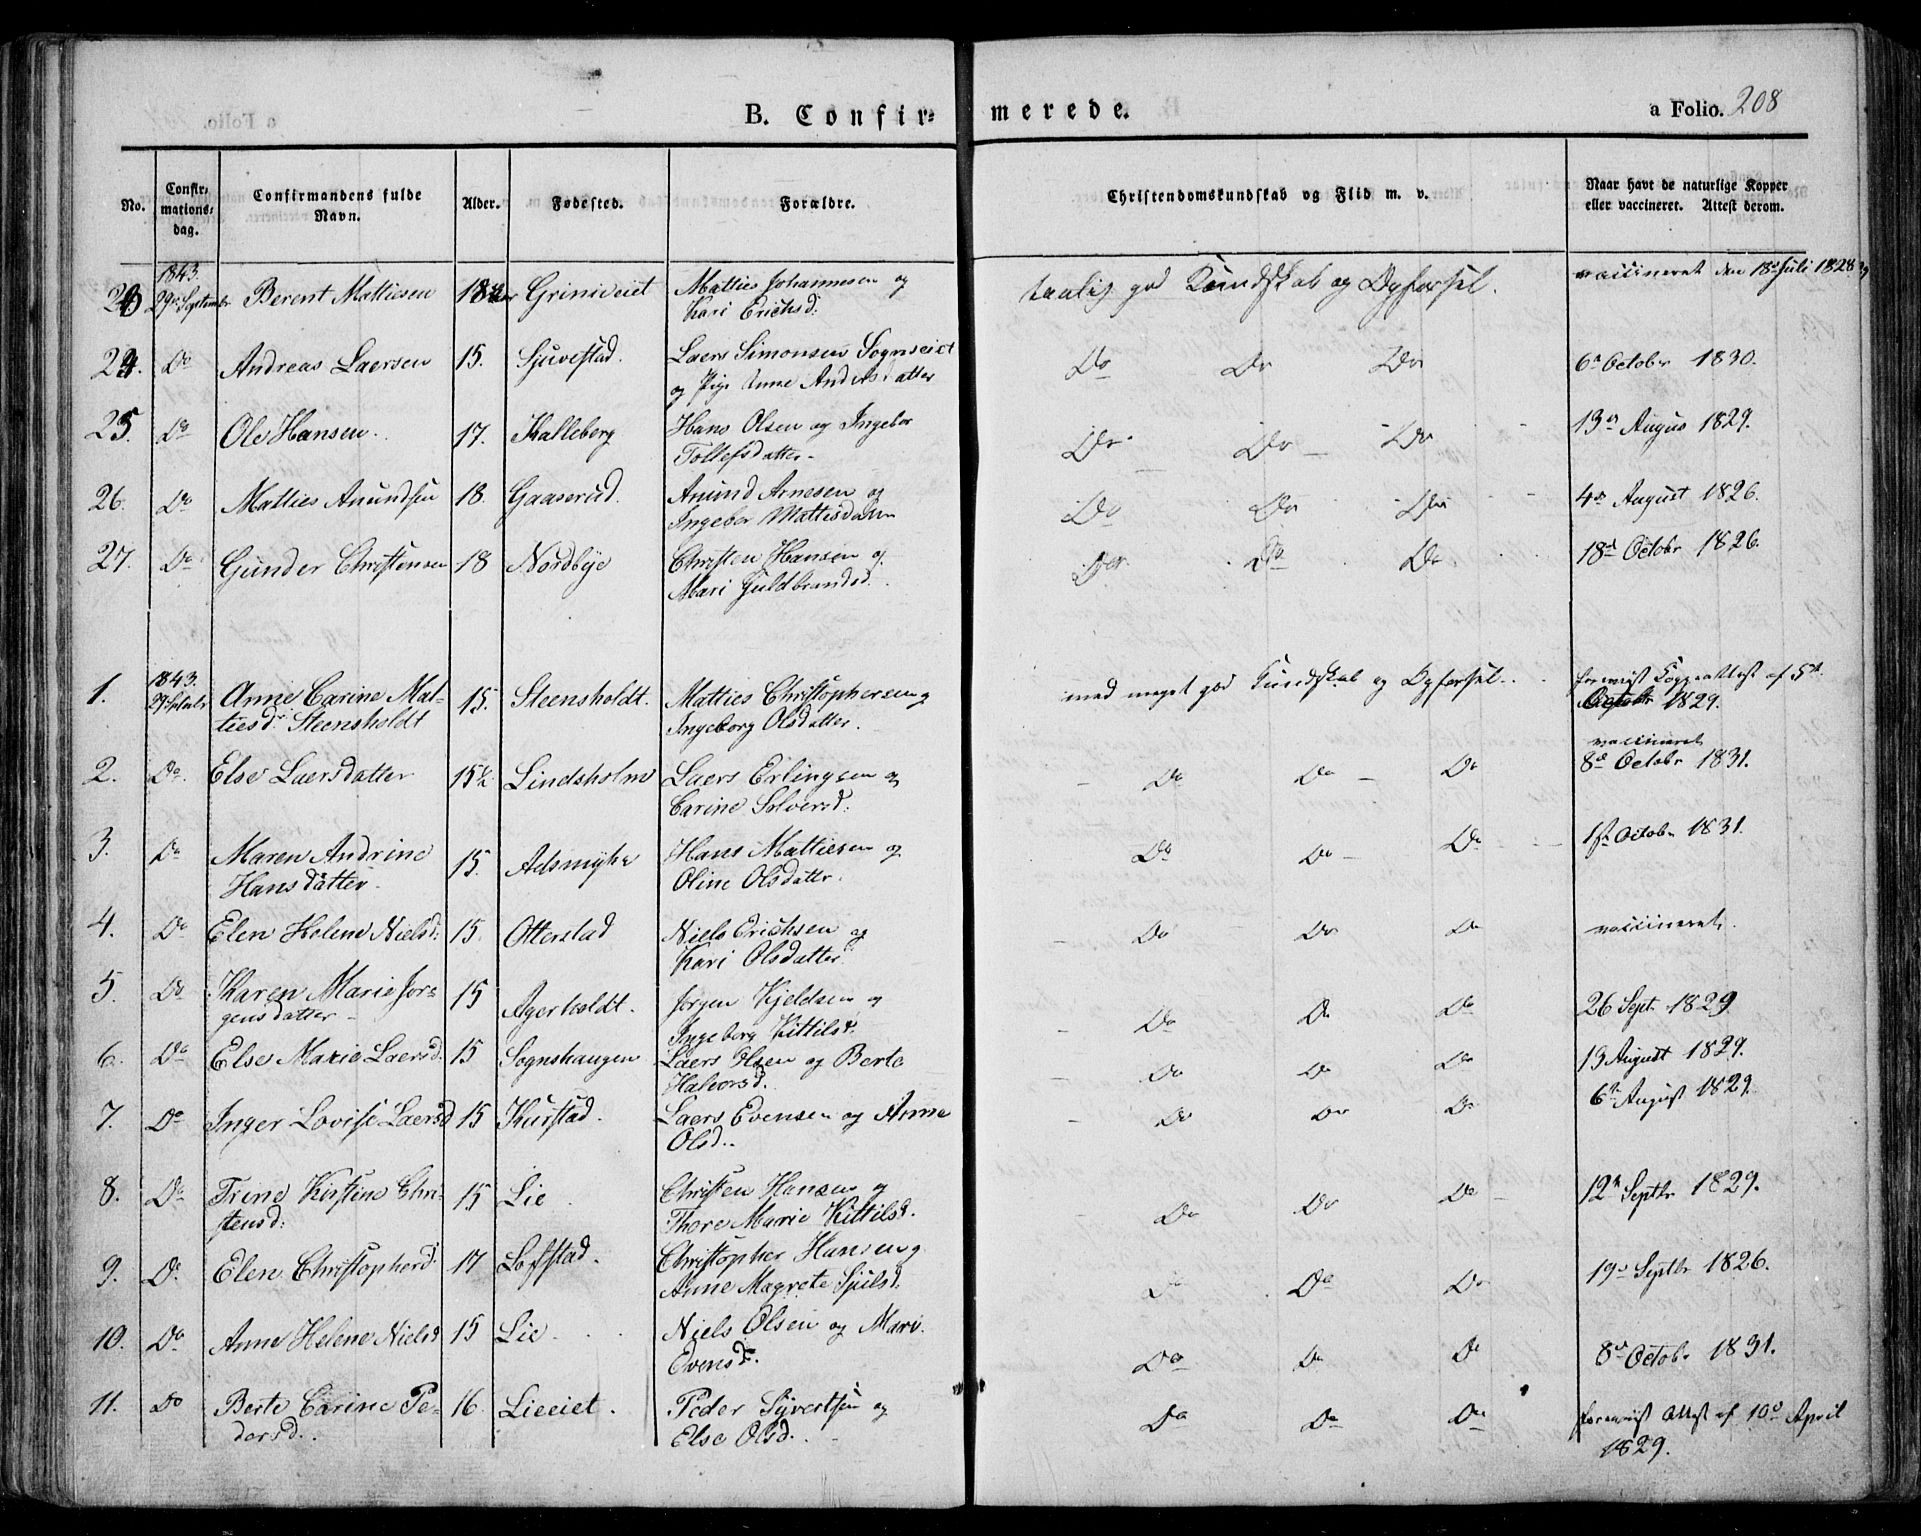 B. Confir= merede.
a Folio. 208
No.
Confir=
mations=
dag.
Confirmandens fulde
Navn.
Alder.
Fødested.
Forældre.
Christendomskundskab og Flid m. v.
Naar havt de naturlige Kopper
eller vaccineret. Attest derom.
1843.
29de Septembr Berent Mattiesen Grinieiet Matties Johannesen og taalig god Kundskab og Opførsel. vaccineret den 18de Juli 1828
Kari Erichsd:
24. Do Andreas Laersen 15. Sjuvestad. Laers Simonsen Sogneeiet Do Do Do 6te Octobr 1830.
og Pige Anne Andersdatter
25. Do Ole Hansen. 17. Kalleberg Hans Olsen og Ingebor Do Do Do 13de Augus 1829.
Tollefsdatter
26. Do Matties Anundsen 18. Gaaserud. Anund Arnesen og Do Do Do 4de August 1826.
Ingebor Mattisdatter
27. Do Gunder Christensen 18 Nordbye Christen Hansen og Do Do Do 18de Octobr 1826.
Mari Guldbrandsd.
1843.
1. Anne Carine Mat= 15. Steensholdt. Matties Christophersen og med meget god Kundskab og Opførsel. foreviist Koppeattest af 5te
tiesd: Steensholdt Ingeborg Olsdatter. Octobr 1829.
vaccineret
2. Do. Else Laersdatter 15½ Lindsholm Laers Erlingsen og Do Do Do 8de Octobr 1831.
Carine Solversd:
3. Do Maren Andrine 15. Adsmyhr Hans Mattiesen og Do Do Do 1ste Octobr 1831.
Hansdatter. Oline Olsdatter.
4. Do Elen Helene Nielsd: 15. Otterstad Niels Erichsen og Do Do Do vaccineret.
Kari Olsdatter
5. Do Karen Marie Jør= 15 Agerholdt. Jørgen Kjeldsen og Do Do Do 26 Sept. 1829
gensdatter Ingeborg Kittilsd.
6. Do Else Marie Laersd. 15 Sognshaugen Laers Olsen og Berte Do Do Do 13 August 1829.
Halvorsd.
7. Do Inger Lovise Laersd 15 Kurstad. Laers Evensen og Anne Do Do Do 6te August 1829.
Olsd.
8. Do Trine Kirstine Chri= 15 Lie Christen Hansen og Do Do Do 12te Septbr 1829.
stensd: Thore Marie Kittilsd.
9. Do Elen Christopherd 17 Lofstad. Christopher Hansen og Do Do Do 19de Septbr 1826.
Anne Magrete Sjulsd.
10. Do Anne Helene Nielsd 15 Lie Niels Olsen og Mari Do Do Do 8de Octobr 1831.
Evensd.
11. Do Berte Carine Pe= 16 Lieeiet. Peder Syvertsen og Do Do Do foreviist Attest af 10de April
dersd. Else Olsd. 1829.